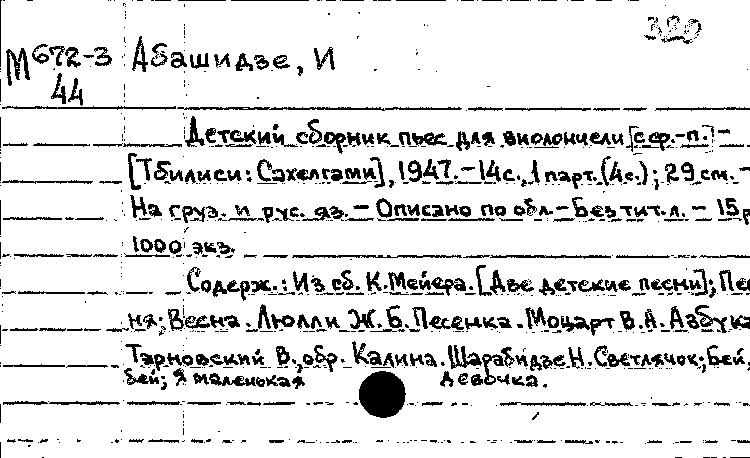 320
М 672-3 Абашидзе, И
44
Детский сборник пьес для виолончели [с ф.-п.] -
[Тбилиси: Сахелгами], 1947. - 14с., 1 парт. (4с.); 29 см. -
На груз. и рус. яз. - Описано по обл. - Без тит. л. - 15 р
1000 экз.
Содерж.: Из сб. К. Мейера. [Две детские песни]; Пес
ня; Весна. Люлли Ж. Б. Песенка. Моцарт В. А. Азбука
Тарновский В., обр. Калина. Шарабидзе Н. Светлячок; Бей,
бей; Я маленькая девочка.